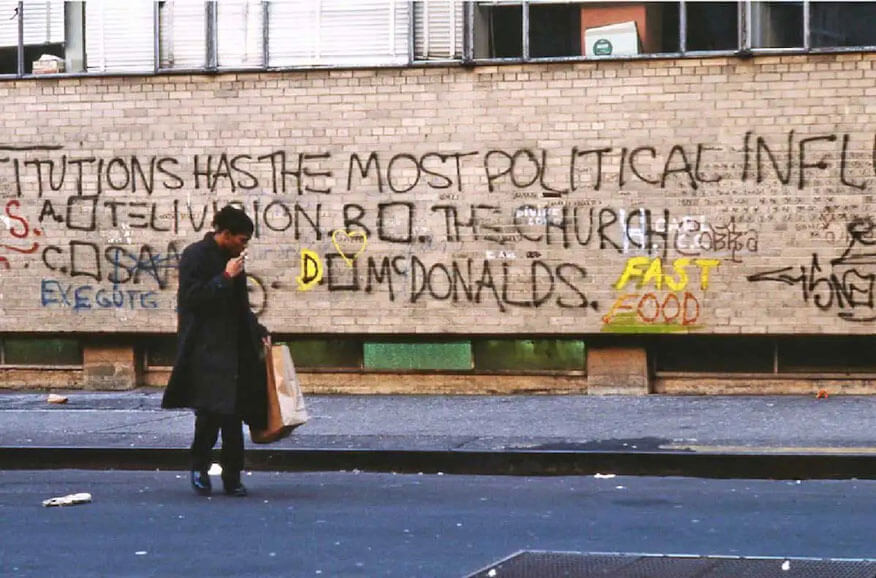 TITUTIONS HAS THE MOST POLITICAL INFLU
S. A. TELIVISION. B. THE CHURCH
C. SAA D McDONALDS. FAST
FOOD